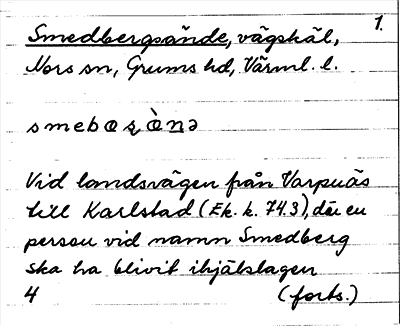 1.
Smedbergsände, vägskäl,
Nors sn, Grums hd, Värml. l.
smebæʂàn̥ə
Vid landsvägen från Varpnäs
till Karlstad (Ek. k. 74.3), där en
person vid namn Smedberg
ska ha blivit ihjälslagen
4 (forts.)